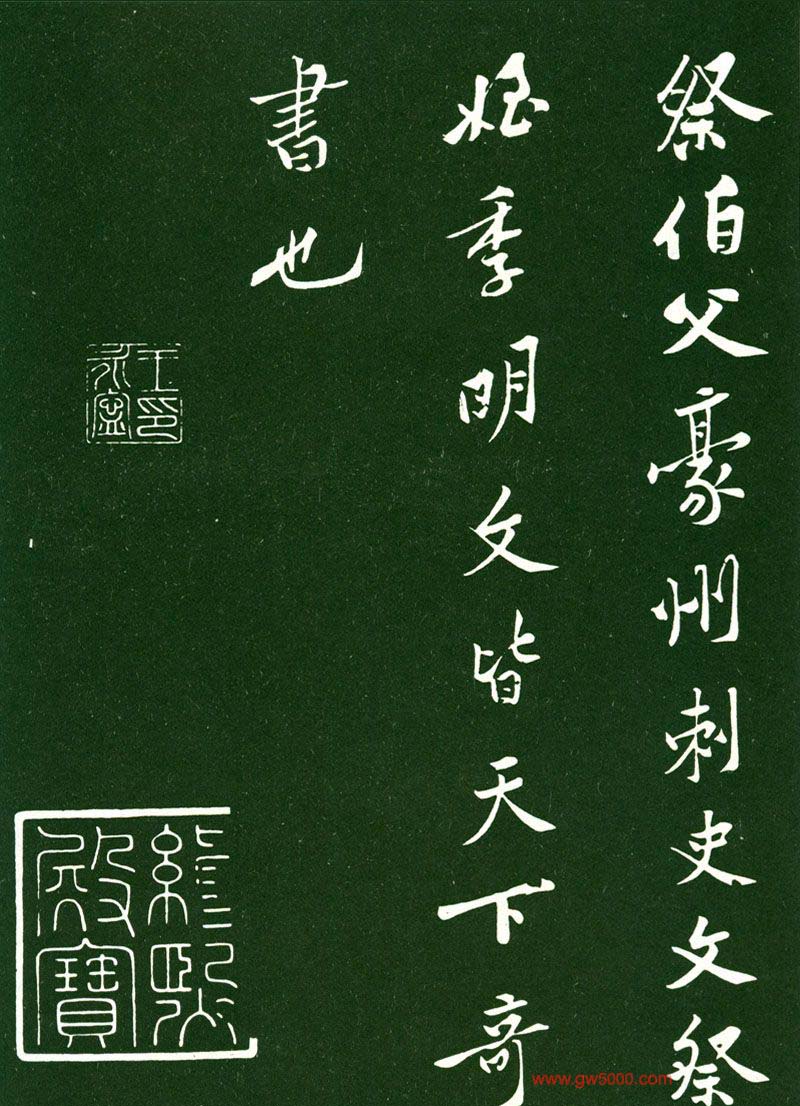 祭伯父豪州刺史文祭
姪季明文皆天下奇
書也
王永寧印
緝熙殿寶
www.gw5000.com